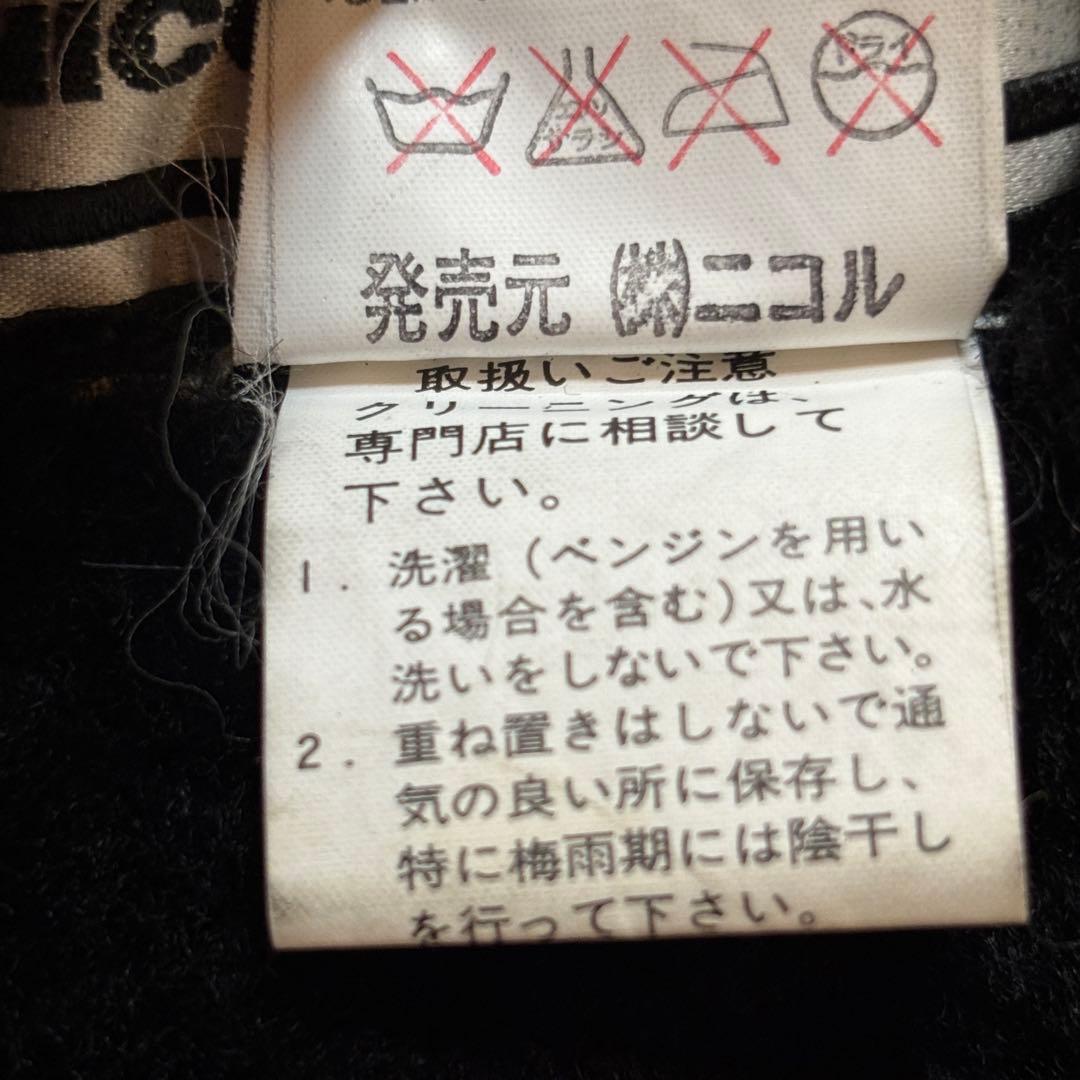 エンソ サラシ
ドライ
発売元 ㈱ニコル
取扱いご注意
クリーニングは、
専門店に相談して
下さい。
1. 洗濯(ベンジンを用い
る場合を含む)又は、水
洗いをしないで下さい。
2. 重ね置きはしないで通
気の良い所に保存し、
特に梅雨期には陰干し
を行って下さい。